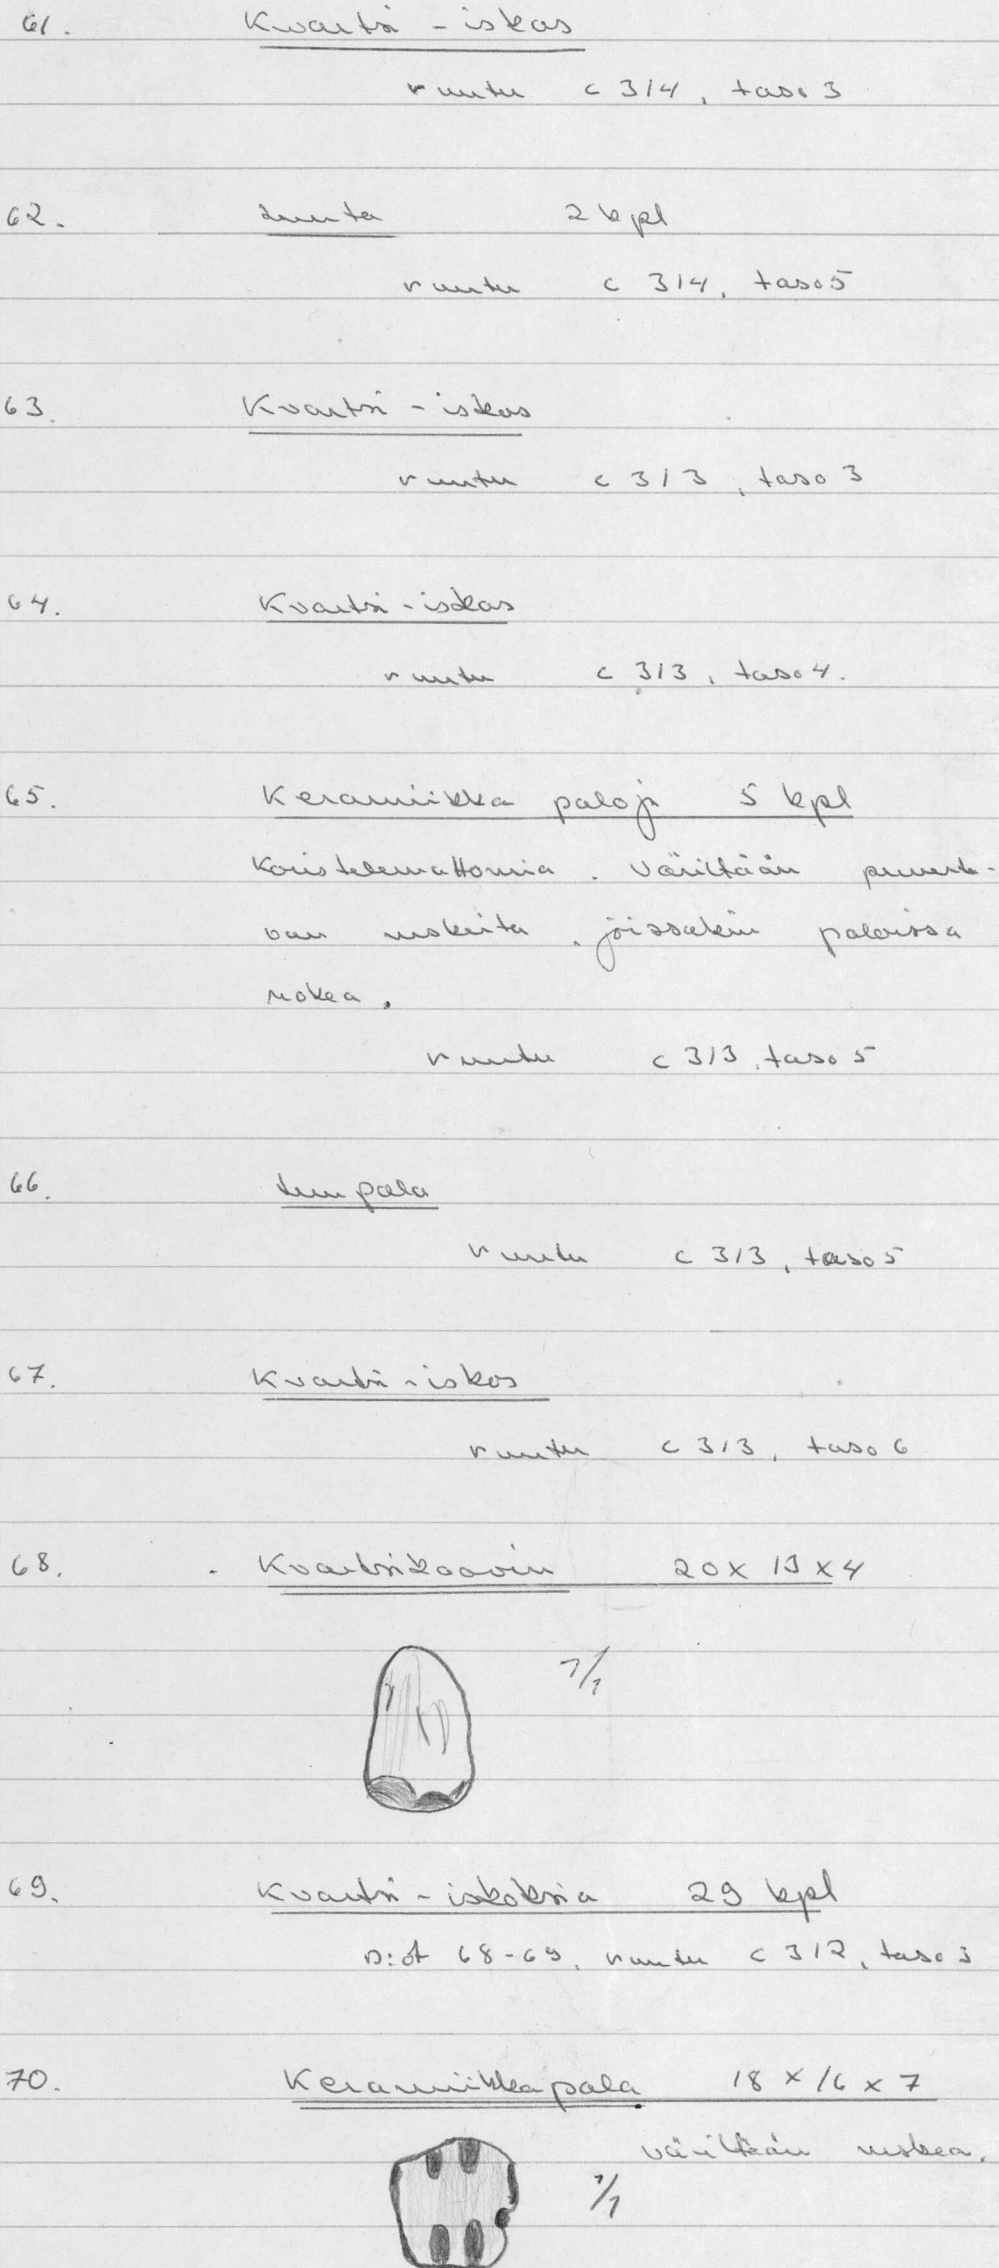 61. Kvartsi-iskos
ruutu c 3/4, taso 3
62. Luuta 2 kpl
ruutu c 3/4, taso 5
63. Kvartsi-iskos
ruutu c 3/3, taso 3
64. Kvartsi-iskos
ruutu c 3/3, taso 4.
65. Keramiikka paloja 5 kpl
Koristelemattomia. Väriltään punerta-
van ruskeita. joissakin paloissa
nokea.
ruutu c 3/3, taso 5
66. Luu pala
ruutu c 3/3, taso 5
67. Kvartsi-iskos
ruutu c 3/3, taso 6
68. Kvartsikaavin 20 x 13 x 4
1/1
69. Kvartsi-iskoksia 29 kpl
N:ot 68-69, ruutu c 3/2, taso 3
70. Keramiikkapala 18 x 16 x 7
väriltään ruskea.
1/1